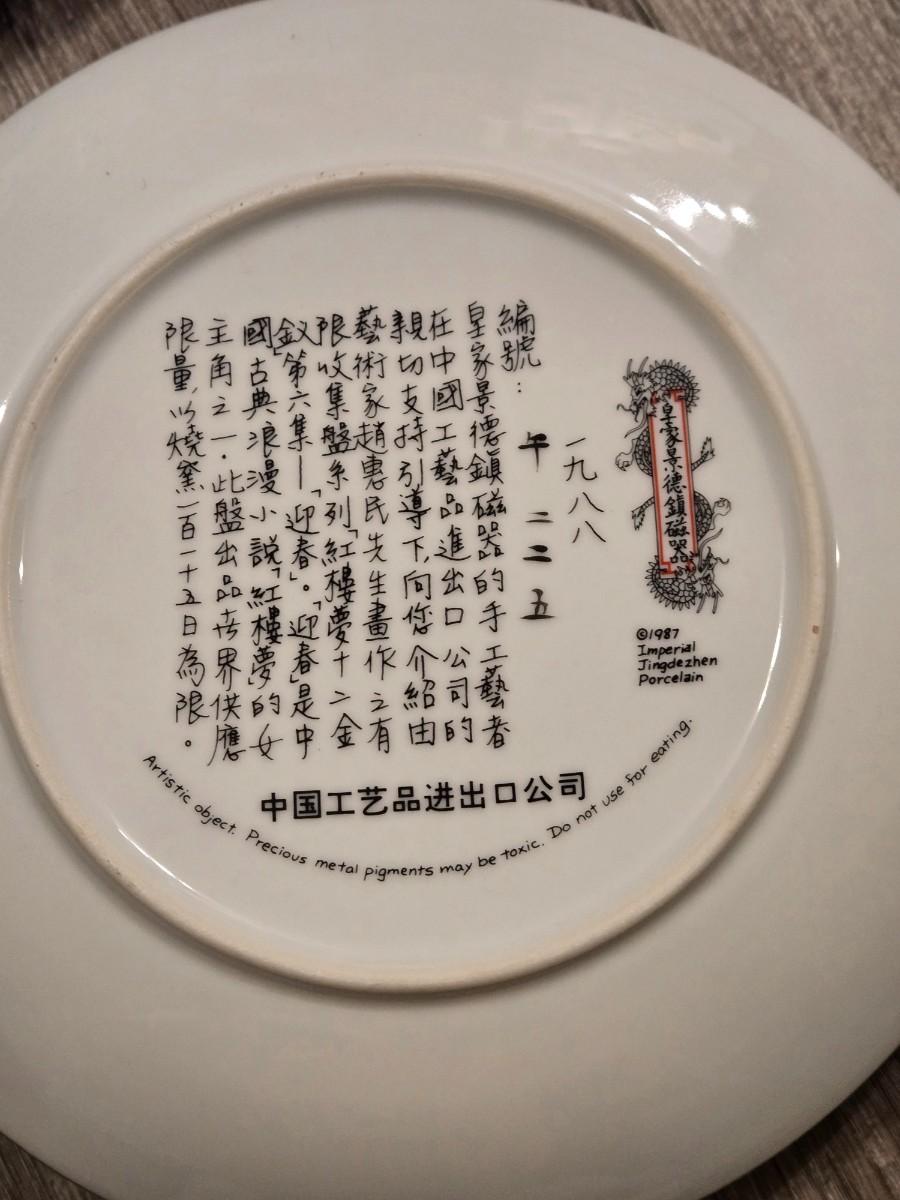 皇家景德鎮磁器
©1987
Imperial
Jingdezhen
Porcelain
一九八八
午二二五
編號：
皇家景德鎮磁器的手工藝者
在中國工藝品進出口公司的
親切支持引導下,向您介紹由
藝術家趙惠民先生畫作之有
限收集盤系列「紅樓夢十二金
釵」第六集—「迎春」。「迎春」是中
國古典浪漫小說「紅樓夢」的女
主角之一.此盤出品世界供應
限量,以燒窯一百一十五日為限。
中国工艺品进出口公司
Artistic object. Precious metal pigments may be toxic. Do not use for eating.